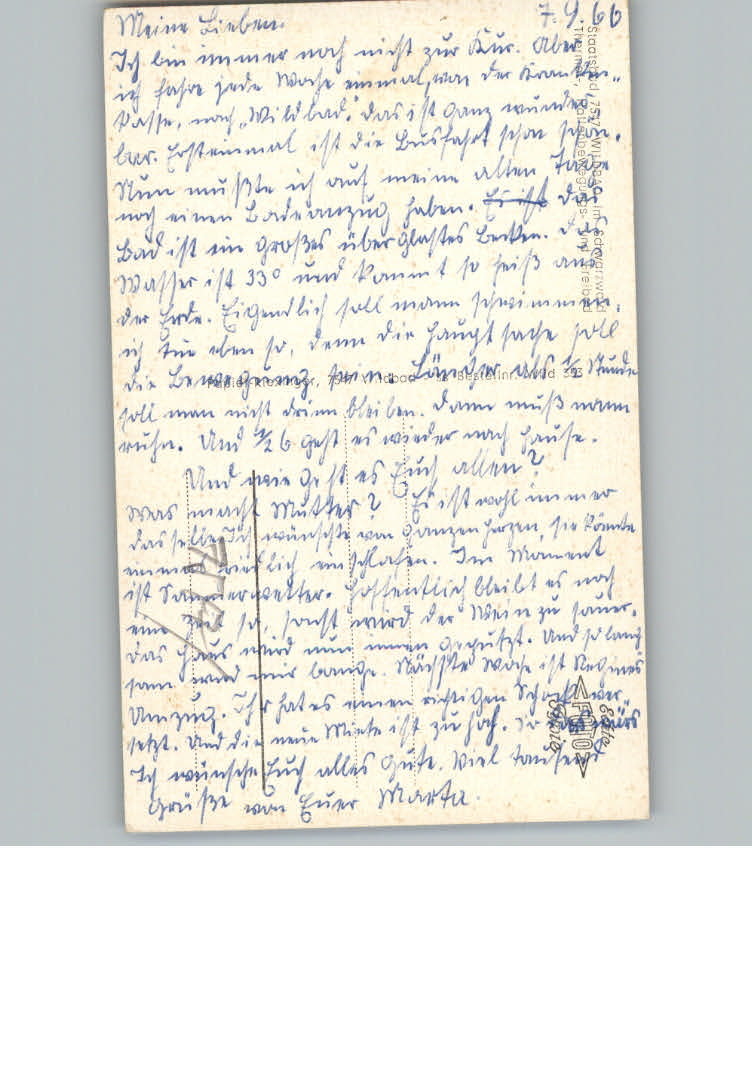 7.9.66
Meine Lieben.
Ich bin immer noch nicht zur Kur. Aber
ich fahre jede Woche einmal, von der Kranken-
kasse, nach „Wildbad". Das ist ganz wunder-
bar. Ersteinmal ist die Busfahrt schon schön.
Nun mußte ich auf meine alten Tage
noch einen Badeanzug haben. Es ist Das
Bad ist ein großes überglastes Becken. Das
Wasser ist 33° und kommt so heiß aus
der Erde. Eigendlich soll mann schwimmen.
ich tue eben so, denn die Hauptsache soll
die Bewegung sein. Länder als ½ Stunde
soll man nicht drinn bleiben. Dann muß mann
ruhn. Und ½ 6 geht es wieder nach Hause.
Und wie geht es Euch allen?
Was macht Mutter? Es ist wohl immer
dasselbe. Ich wünschte von ganzen Herzen, sie könnte
einmal friedlich einschlafen. Im Moment
ist Sommerwetter. Hoffentlich bleibt es noch
eine Zeit so, sonst wird der Wein zu sauer.
Das Haus wird nun innen geputzt. Und so lang-
sam wird mir bange. Nächste Woche ist Regines
Umzug. Ihr hat es einen richtigen Schock ver-
setzt. Und die neue Miete ist zu hoch. So
Ich wünsche Euch alles Gute. Viel tausend
Grüße von Euer Marta.
Staatsbad 7547 WILDBAD im Schwarzwald
Thermal-, Hallenbewegungs- und Freibad
7547 Wildbad
Bestellnr. Wild 393
Echte
FOTO